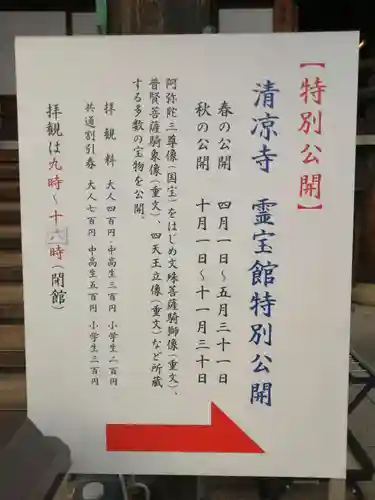 【特別公開】
清凉寺 霊宝館特別公開
春の公開 四月一日～五月三十一日
秋の公開 十月一日～十一月三十日
阿弥陀三尊像(国宝)をはじめ文殊菩薩騎獅像(重文)、
普賢菩薩騎象像(重文)、四天王立像(重文)など所蔵
する多数の宝物を公開。
拝観料 大人四百円・中高生三百円 小学生二百円
共通割引券 大人七百円 中高生五百円 小学生三百円
拝観は九時～十六時(閉館)